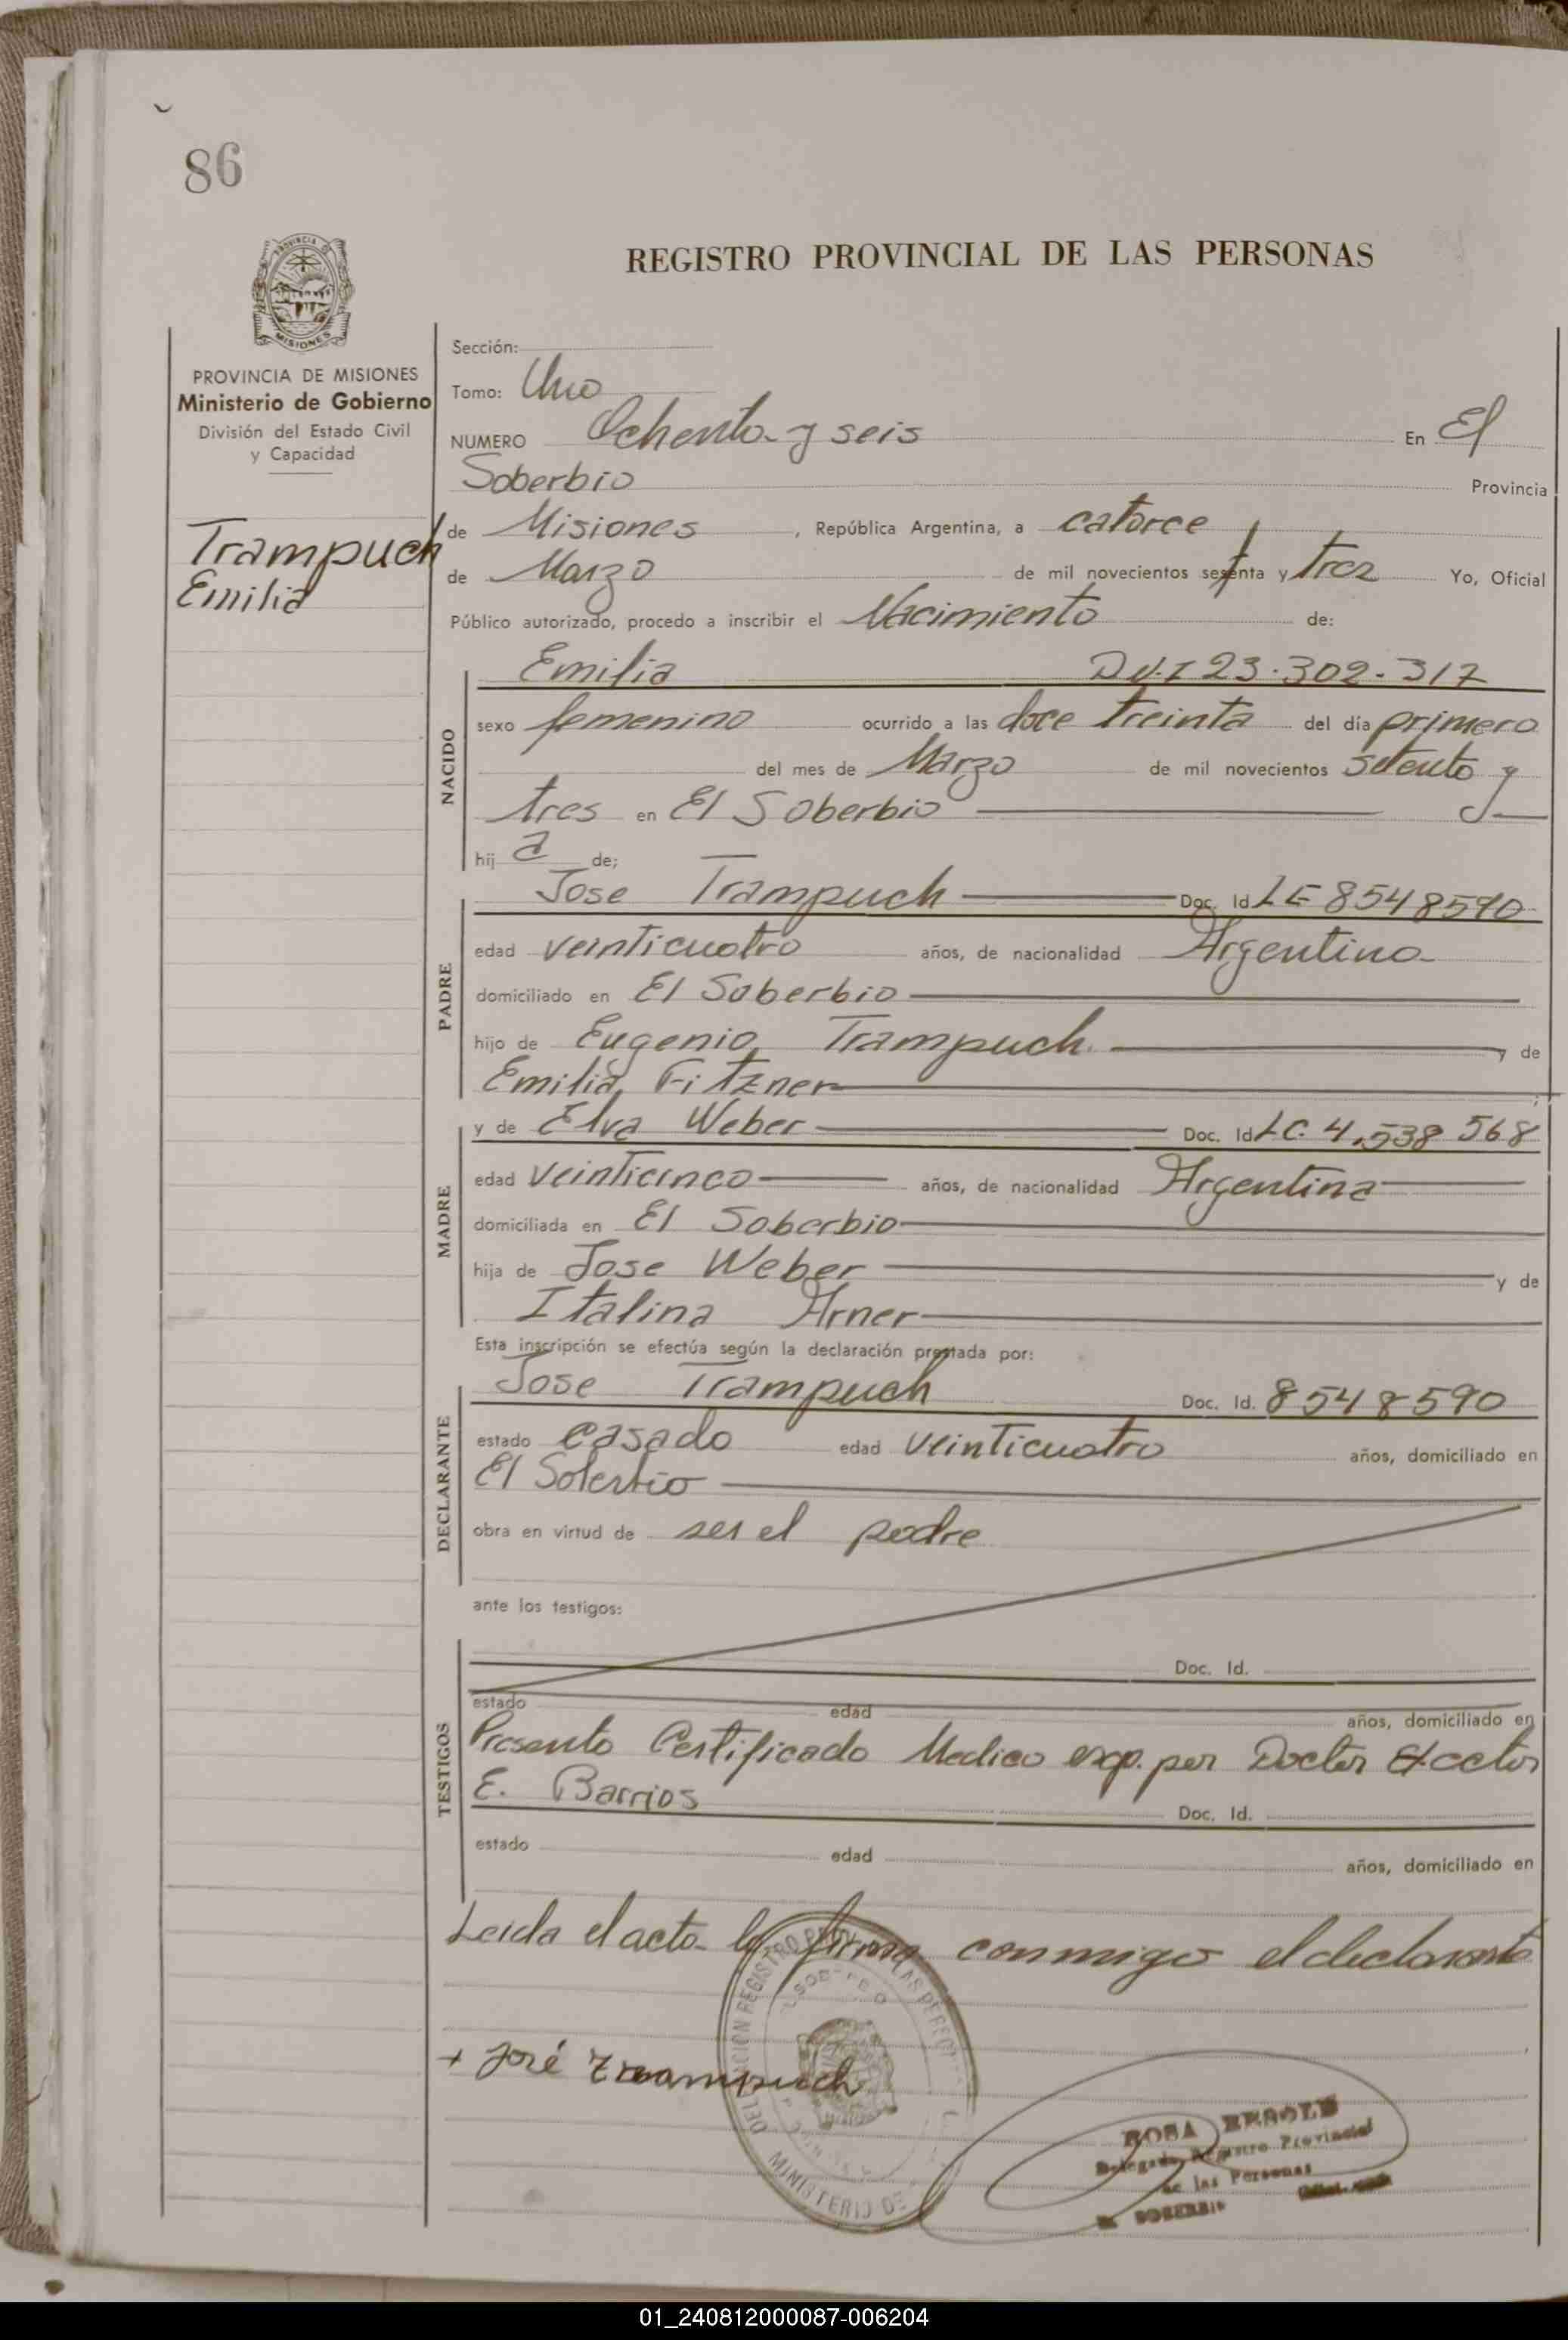 86
REGISTRO PROVINCIAL DE LAS PERSONAS
PROVINCIA DE MISIONES
Ministerio de Gobierno
División del Estado Civil
y Capacidad
Trampuch
Emilia
Sección:
Tomo: Uno
NUMERO Ochenta y seis En El
Soberbio Provincia
de Misiones, República Argentina, a catorce
de Marzo de mil novecientos setenta y tres Yo, Oficial
Público autorizado, procedo a inscribir el Nacimiento de:
Emilia D.N.I 23.302.317
NACIDO
sexo femenino ocurrido a las doce treinta del día primero
del mes de Marzo de mil novecientos setenta y
tres en El Soberbio
hij a de;
Jose Trampuch Doc. Id. LE 8548590
PADRE
edad veinticuatro años, de nacionalidad Argentina
domiciliado en El Soberbio
hijo de Eugenio Trampuch y de
Emilia Fitzner
y de Elva Weber Doc. Id. LC. 4.538 568
MADRE
edad veinticinco años, de nacionalidad Argentina
domiciliada en El Soberbio
hija de Jose Weber y de
Italina Arner
Esta inscripción se efectúa según la declaración prestada por:
Jose Trampuch Doc. Id. 8548590
DECLARANTE
estado casado edad veinticuatro años, domiciliado en
El Soberbio
obra en virtud de ser el padre
ante los testigos:
Doc. Id.
TESTIGOS
estado edad años, domiciliado en
Presento Certificado Medico exp. por Doctor
E. Barrios Doc. Id.
estado edad años, domiciliado en
Leida el acta la firma conmigo el declarante
+ José Trampuch
ROSA
Delegada Registro Provincial
de las Personas
El SOBERBIO
MINISTERIO DE
01_240812000087-006204